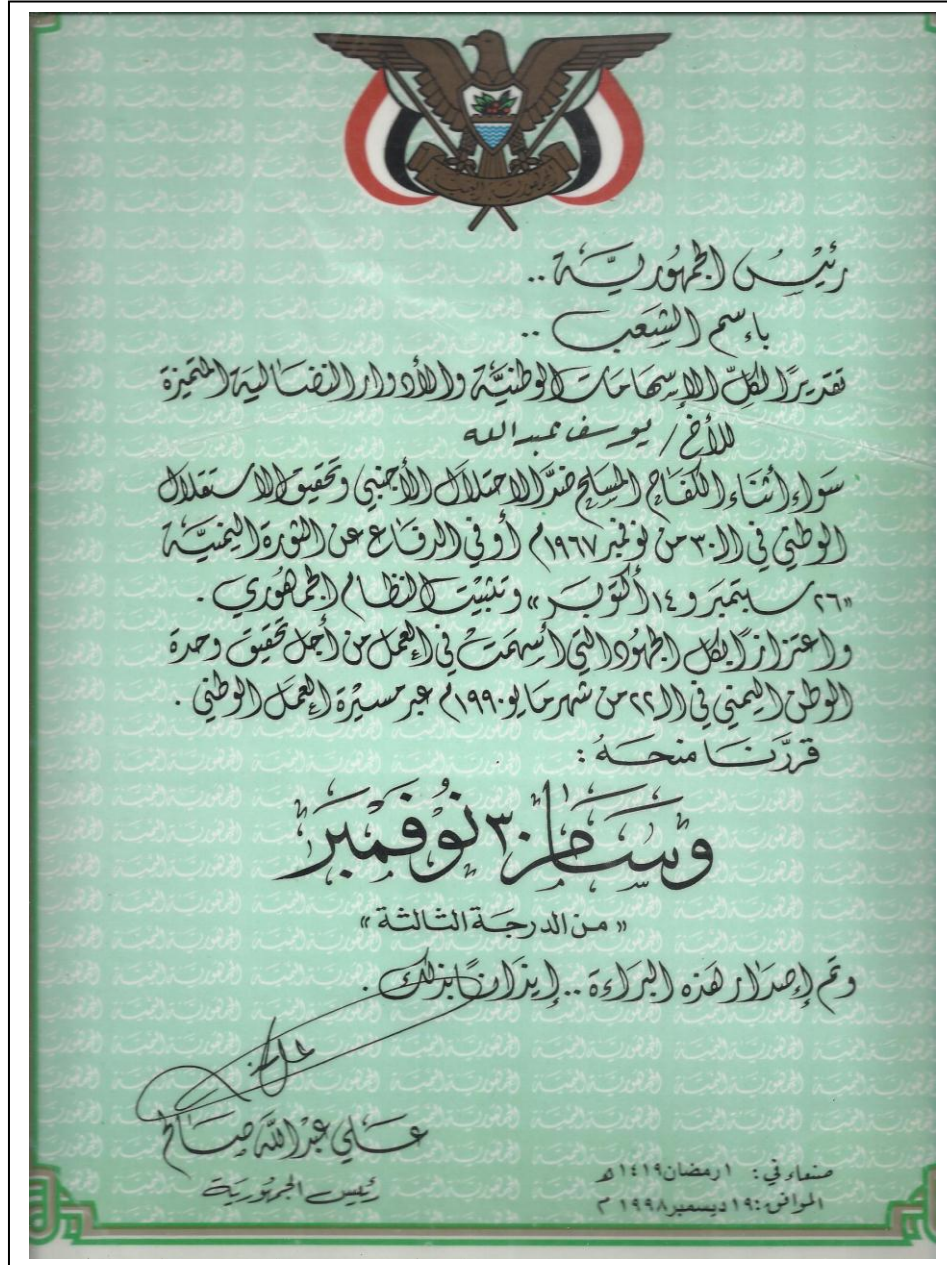 الجمهورية اليمنية
رئيس الجمهورية ..
باسم الشعب ..
تقديرًا لكلّ الإسهامات الوطنيّة والأدوار النضالية المتميزة
للأخ / يوسف عبدالله
سواء أثناء الكفاح المسلح ضدّ الاحتلال الأجنبي وتحقيق الاستقلال
الوطني في الـ ٣٠ من نوفمبر ١٩٦٧م أو في الدفاع عن الثورة اليمنيّة
«٢٦ سبتمبر و ١٤ أكتوبر» وتثبيت النظام الجمهوري .
واعتزازًا بكل الجهود التي أسهمت في العمل من أجل تحقيق وحدة
الوطن اليمني في الـ ٢٢ من شهر مايو ١٩٩٠م عبر مسيرة العمل الوطني .
قرّرنا منحه :
وسام ٣٠ نوفمبر
« من الدرجة الثالثة »
وتم إصدار هذه البراءة .. إيذانًا بذلك .
علي عبدالله صالح
رئيس الجمهورية
صنعاء في : ١ رمضان ١٤١٩ هـ
الموافق : ١٩ ديسمبر ١٩٩٨ م